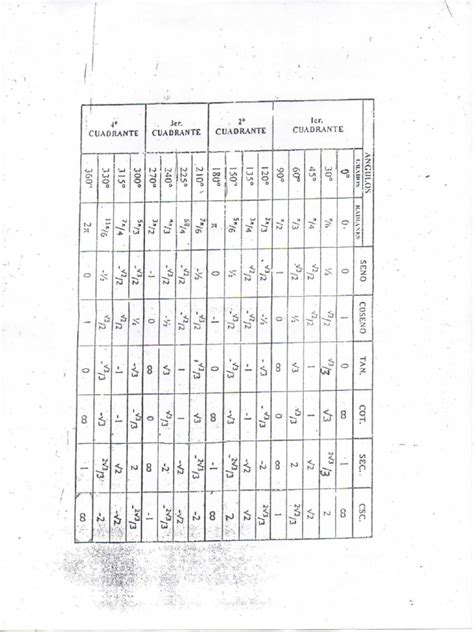 ANGULOS
GRADOS RADIANES SENO COSENO TAN. COT. SEC. CSC.
1er.
CUADRANTE
0° 0 0 1 0 ∞ 1 ∞
30° π/6 ½ √3/2 √3/3 √3 2√3/3 2
45° π/4 √2/2 √2/2 1 1 √2 √2
60° π/3 √3/2 ½ √3 √3/3 2 2√3/3
90° π/2 1 0 ∞ 0 ∞ 1
2º
CUADRANTE
120° 2π/3 √3/2 -½ -√3 -√3/3 -2 2√3/3
135° 3π/4 √2/2 -√2/2 -1 -1 -√2 √2
150° 5π/6 ½ -√3/2 -√3/3 -√3 -2√3/3 2
180° π 0 -1 0 ∞ -1 ∞
3er.
CUADRANTE
210° 7π/6 -½ -√3/2 √3/3 √3 -2√3/3 -2
225° 5π/4 -√2/2 -√2/2 1 1 -√2 -√2
240° 4π/3 -√3/2 -½ √3 √3/3 -2 -2√3/3
270° 3π/2 -1 0 ∞ 0 ∞ -1
4º
CUADRANTE
300° 5π/3 -√3/2 ½ -√3 -√3/3 2 -2√3/3
315° 7π/4 -√2/2 √2/2 -1 -1 √2 -√2
330° 11π/6 -½ √3/2 -√3/3 -√3 2√3/3 -2
360° 2π 0 1 0 ∞ 1 ∞